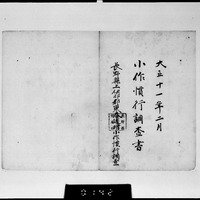 大正十一年二月
小作慣行調査書
長野縣上伊那郡
小作慣行調査
0142